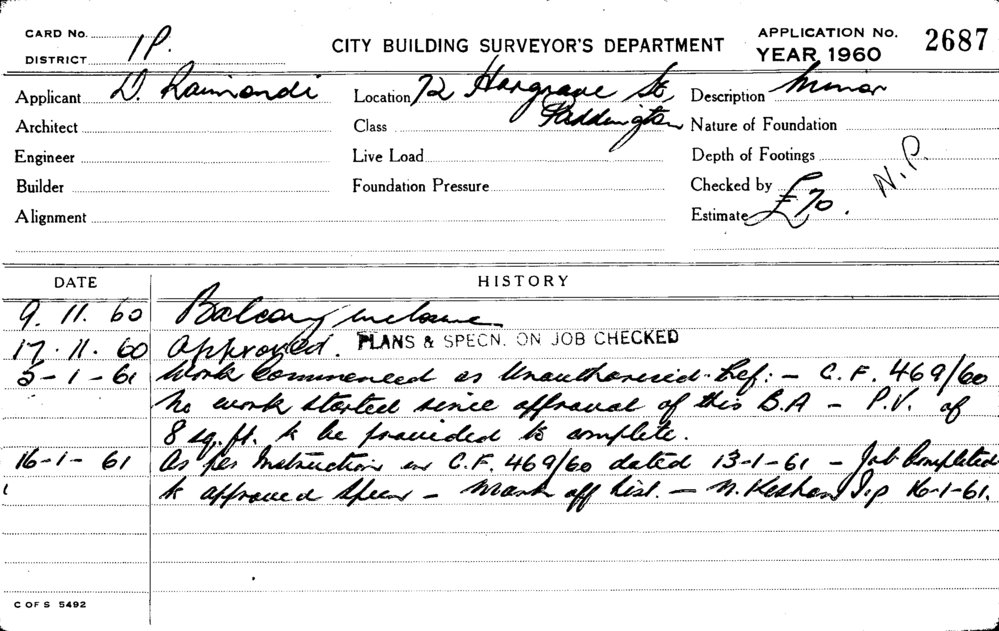 CARD No.
DISTRICT 1P.
CITY BUILDING SURVEYOR'S DEPARTMENT
APPLICATION No. 2687
YEAR 1960
Applicant D. Raimondi
Location 72 Hargrave St, Paddington
Description Minor
Architect
Class
Nature of Foundation
Engineer
Live Load
Depth of Footings
Builder
Foundation Pressure
Checked by
N.P.
Alignment
Estimate £70.
DATE HISTORY
9.11.60 Balcony enclosure
17.11.60 Approved. PLANS & SPECN. ON JOB CHECKED
5-1-61 Work Commenced as Unauthorised. Ref:- C.F. 469/60
No work started since approval of this B.A - P.V. of
8 sq. ft. to be provided to complete.
16-1-61 As per Instruction in C.F. 469/60 dated 13-1-61 - Job Completed
to approved Specn - Mark off list. - 16-1-61.
C OF S 5492